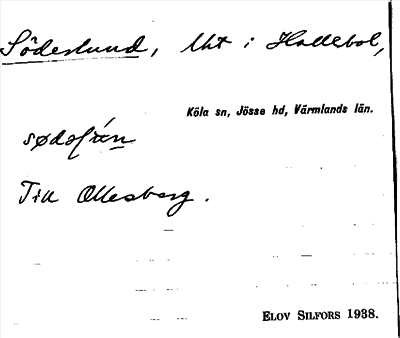 Söderlund, lht i Hallebol,
Köla sn, Jösse hd, Värmlands län.
Till Ollesberg.
ELOV SILFORS 1938.